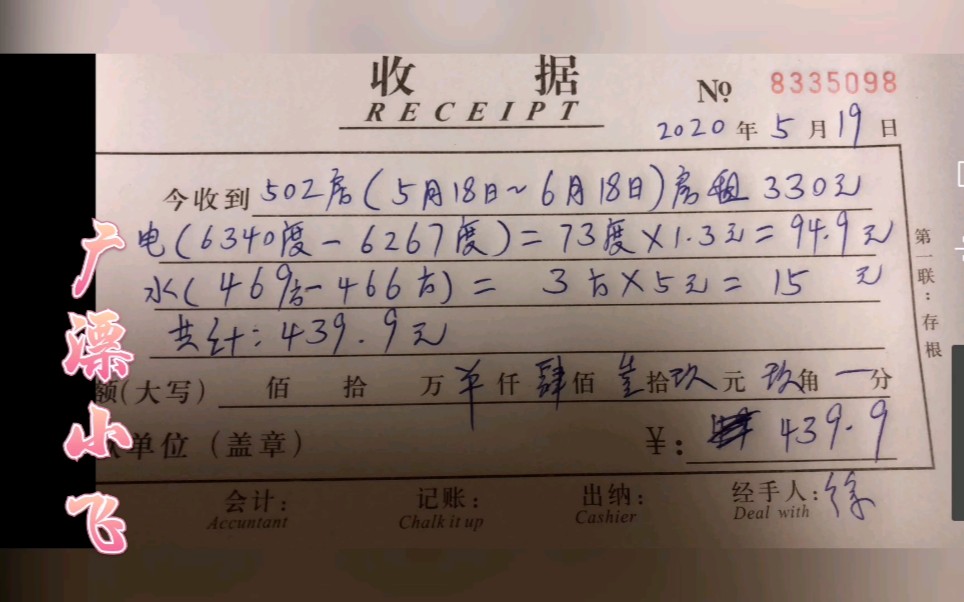 收 据
RECEIPT
№ 8335098
2020年5月19日
今收到502房(5月18日~6月18日)房租330元
电(6340度-6267度)=73度×1.3元=94.9元
水(469方-466方)= 3方×5元= 15 元
共计:439.9元
额(大写) 佰 拾 万 仟肆佰 拾玖元玖角一分
单位(盖章) ¥: 439.9
会计: 记账: 出纳: 经手人:徐
Accuntant Chalk it up Cashier Deal with
第一联:存根
广漂小飞